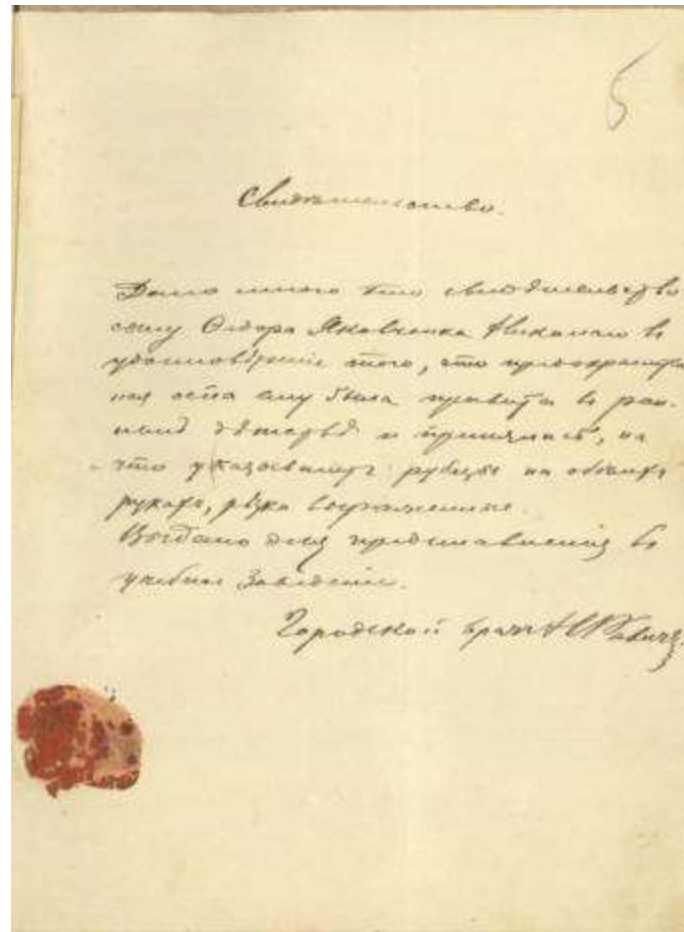 5
Свидѣтельство.
Дано мною это свидѣтельство
сыну Ѳедора Яковченка Николаю въ
удостовѣреніе того, что предохранитель
ная оспа ему была привита въ ран-
немъ дѣтствѣ и принялась, на
что указываютъ рубцы на обѣихъ
рукахъ, рѣзко выраженные.
Выдано для представленія въ
учебное заведеніе.
Городской врачъ